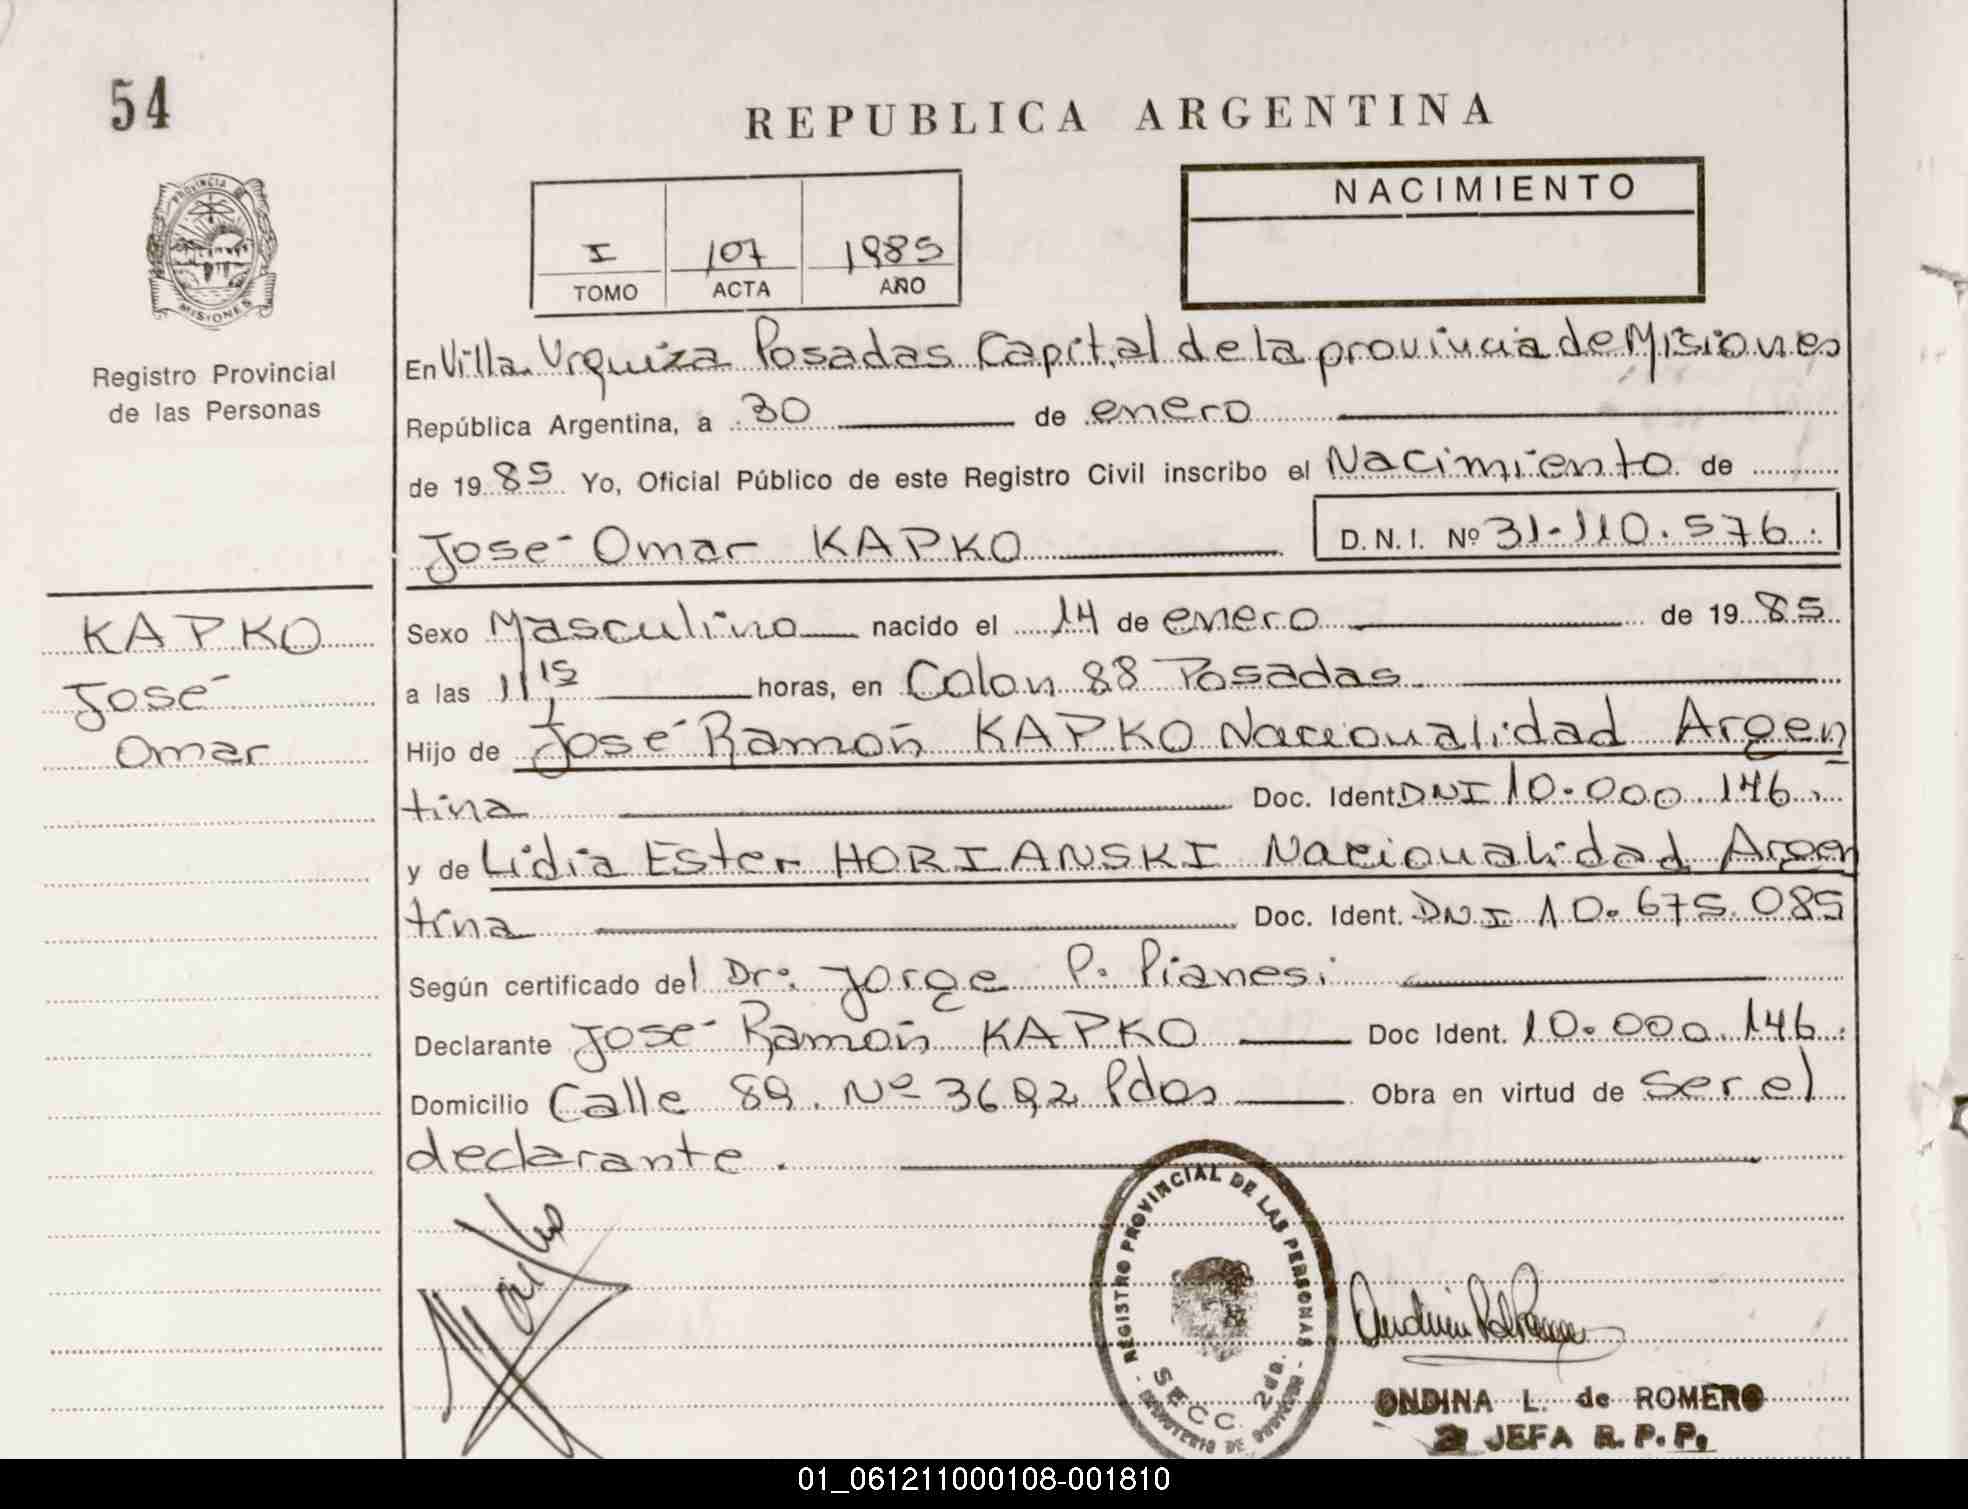 54
REPUBLICA ARGENTINA
PROVINCIA DE
MISIONES
Registro Provincial
de las Personas
I 107 1985
TOMO ACTA AÑO
NACIMIENTO
En Villa Urquiza Posadas Capital de la provincia de Misiones
República Argentina, a 30 de enero
de 1985 Yo, Oficial Público de este Registro Civil inscribo el Nacimiento de
José Omar KAPKO D.N.I. Nº 31-110.576.
KAPKO
José
Omar
Sexo Masculino nacido el 14 de enero de 1985
a las 11 15 horas, en Colon 88 Posadas
Hijo de José Ramón KAPKO Nacionalidad Argen
tina Doc. Ident DNI 10.000.146.
y de Lidia Ester HORIANSKI Nacionalidad Argen
tina Doc. Ident. DNI 10.675.085
Según certificado del Dr: Jorge P. Pianesi
Declarante José Ramón KAPKO Doc Ident. 10.000.146.
Domicilio Calle 89. Nº 3692 Pdas Obra en virtud de ser el
declarante.
REGISTRO PROVINCIAL DE LAS PERSONAS
SECC. 2da.
MINISTERIO DE GOBIERNO
ONDINA L. de ROMERO
2 JEFA R. P. P.
01_061211000108-001810